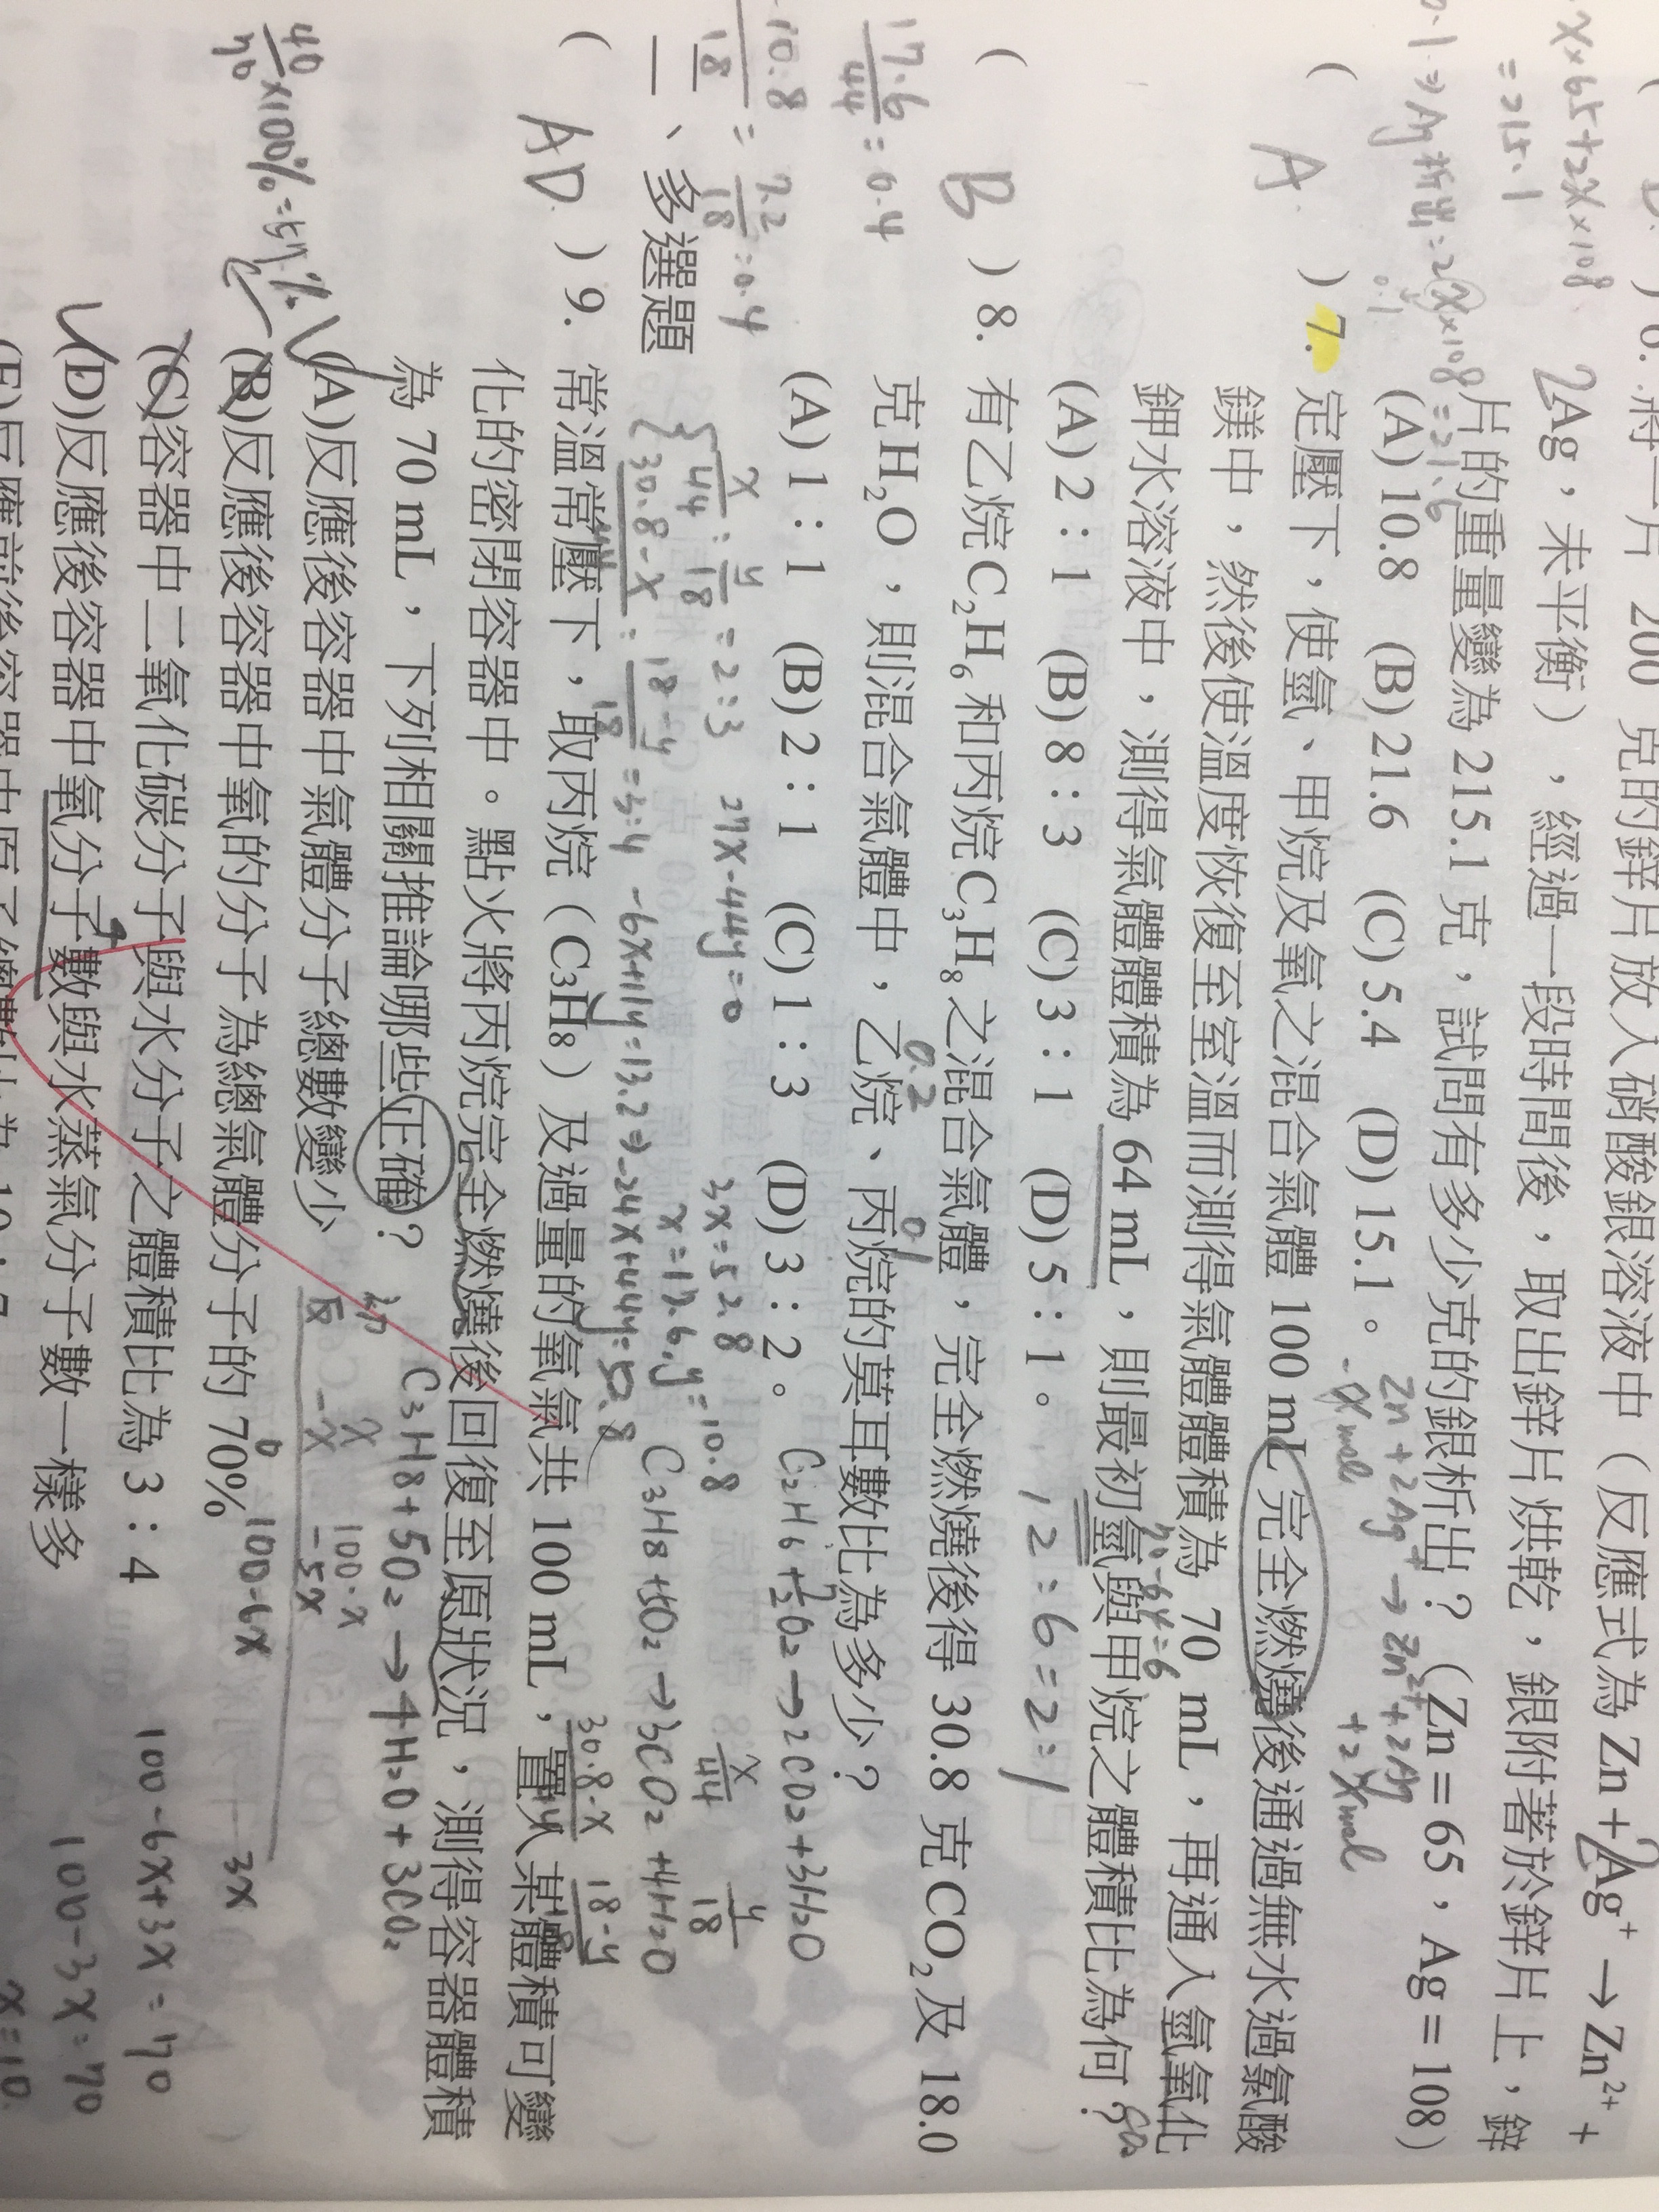 將一片 200 克的鋅片放入硝酸銀溶液中（反應式為 Zn + 2Ag⁺ → Zn²⁺ +
2Ag，未平衡），經過一段時間後，取出鋅片烘乾，銀附著於鋅片上，鋅
片的重量變為 215.1 克，試問有多少克的銀析出？（Zn = 65，Ag = 108）
(A) 10.8 (B) 21.6 (C) 5.4 (D) 15.1。
x×65+2x×108
=215.1
Zn + 2Ag⁺ → Zn²⁺ + 2Ag
-xmol +2xmol
( A ) 7. 定壓下，使氫、甲烷及氧之混合氣體 100 mL 完全燃燒後通過無水過氯酸
鎂中，然後使溫度恢復至室溫而測得氣體體積為 70 mL，再通入氫氧化
鉀水溶液中，測得氣體體積為 64 mL，則最初氫與甲烷之體積比為何？
70-64=6
(A) 2：1 (B) 8：3 (C) 3：1 (D) 5：1。
12:6=2:1
( B ) 8. 有乙烷 C₂H₆ 和丙烷 C₃H₈ 之混合氣體，完全燃燒後得 30.8 克 CO₂ 及 18.0
克 H₂O，則混合氣體中，乙烷、丙烷的莫耳數比為多少？
0.2
(A) 1：1 (B) 2：1 (C) 1：3 (D) 3：2。
C₂H₆ + 7/2 O₂ → 2CO₂ + 3H₂O
17.6/44 = 0.4
10.8/18
7.2/18 = 0.4
x/44 : y/18 = 2:3
27x-44y=0
3x=52.8
x=17.6, y=10.8
C₃H₈ + 5O₂ → 3CO₂ + 4H₂O
x/44
y/18
30.8-x
18-y
二、多選題
( AD ) 9. 常溫常壓下，取丙烷（C₃H₈）及過量的氧氣共 100 mL，置入某體積可變
化的密閉容器中。點火將丙烷完全燃燒後回復至原狀況，測得容器體積
為 70 mL，下列相關推論哪些正確？
C₃H₈ + 5O₂ → 4H₂O + 3CO₂
(A)反應後容器中氣體分子總數變少
x 100-x
-x -5x
(B)反應後容器中氧的分子為總氣體分子的 70%
0 100-6x 3x
40/70 ×100%=57%
(C)容器中二氧化碳分子與水分子之體積比為 3：4
100-6x+3x=70
(D)反應後容器中氧分子數與水蒸氣分子數一樣多
100-3x=70
x=10